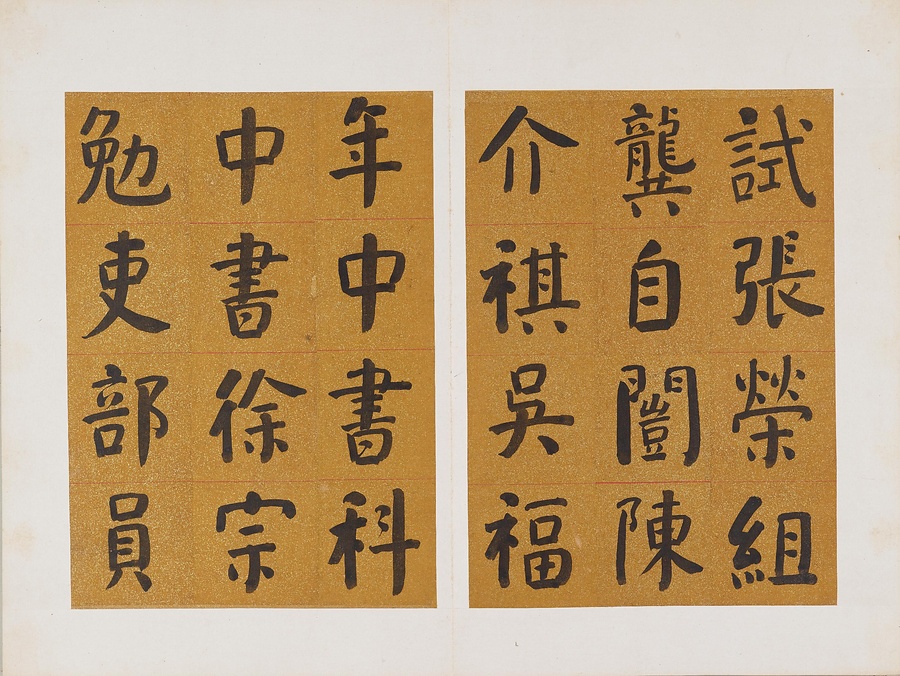 試張榮組
龔自闓陳
介祺吳福
年中書科
中書徐宗
勉吏部員